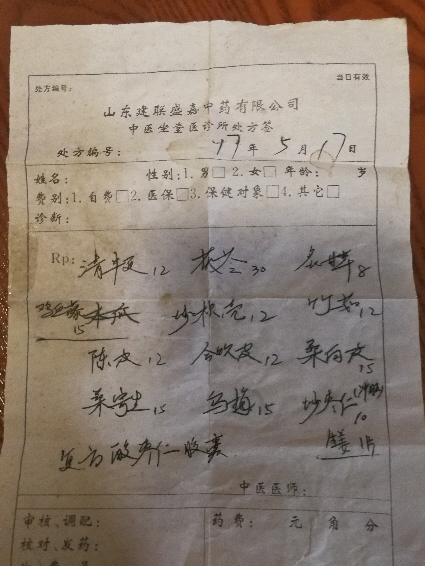 处方编号:
当日有效
山东建联盛嘉中药有限公司
中医坐堂医诊所处方签
处方编号: 年5月17日
姓名: 性别:1.男□2.女□年龄: 岁
费别:1.自费□2.医保□3.保健对象□4.其它□
诊断:
Rp: 清半夏12 茯苓30 8
鸡血藤15 木瓜 炒枳壳12 竹茹12
陈皮12 合欢皮12 桑白皮15
桑寄生15 乌梅15 炒枣仁10
复方酸枣仁胶囊 姜1片
中医医师:
审核、调配: 药费: 元 角 分
核对、发药: